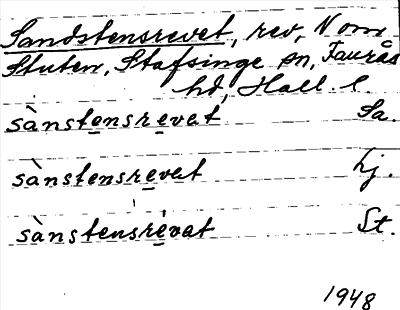 Sandstensrevet, rev, N om
Stuten, Stafsinge sn, Faurås
hd, Hall. l.
sànstensrevat Sa.
sànstensrevat Lj.
sànstensrévat St.
1948